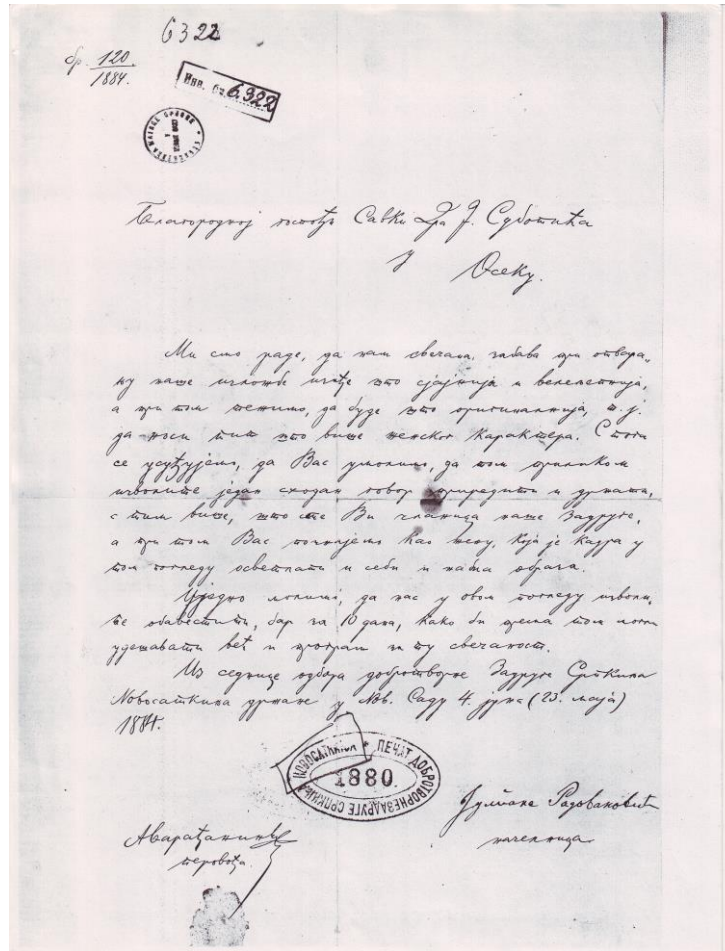 6322
бр. 120/1884.
Инв. бр. 6322
Благородној госпођи Савки Дра Ј. Суботића
у Осеку.
Ми смо раде, да нам свечана забава при отвара-
њу наше изложбе изиђе што сјајнија и велелепнија,
а при том желимо, да буде што оригиналнија, т. ј.
да носи тип што више женског карактера. С тога
се усуђујемо, да Вас умолимо, да том приликом
изволите један сходан говор приредити и држати,
с тим више, што сте Ви чланица наше Задруге,
а при том Вас познајемо као жену, која је кадра у
том погледу осветлати и себи и нама образа.
Уједно молимо, да нас у овом погледу изволи-
те обавестити, бар за 10 дана, како би према том могли
удешавати већ и програм за ту свечаност.
Из седнице одбора добротворне Задруге Српкиња
Новосаткиња држане у Нов. Саду 4. јуна (23. маја)
1884.
ПЕЧАТ ДОБРОТВОРНЕ ЗАДРУГЕ СРПКИЊА НОВОСАТКИЊА
1880.
Јулијана Радовановић
начелница
А Варађанин
перовођа